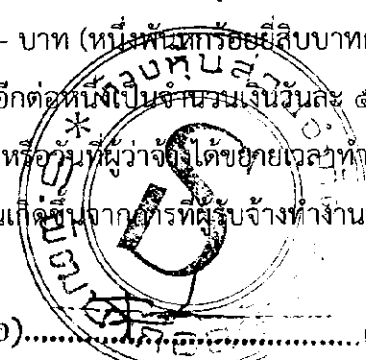 - บาท (หนึ่งพันหกร้อยยี่สิบบาท
อีกต่อหนึ่งเป็นจำนวนเงินวันละ ๕
หรือวันที่ผู้ว่าจ้างได้ขยายเวลาทำ
นเกิดขึ้นจากการที่ผู้รับจ้างทำงาน
ห้างหุ้นส่วน